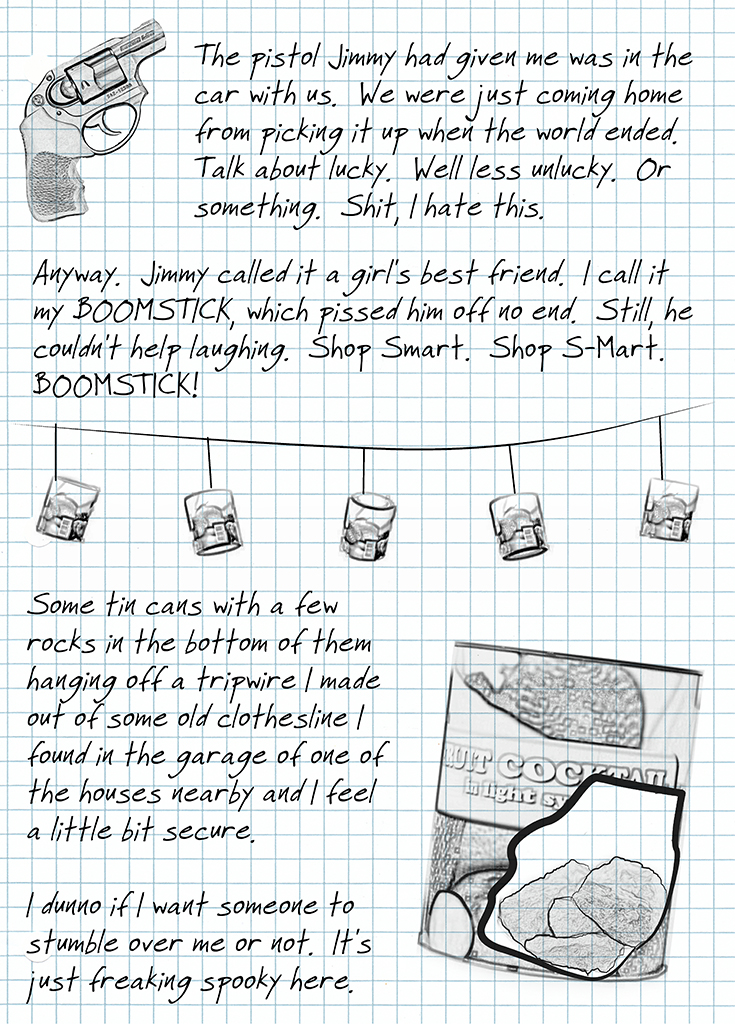 The pistol Jimmy had given me was in the
car with us. We were just coming home
from picking it up when the world ended.
Talk about lucky. Well less unlucky. Or
something. Shit, I hate this.
Anyway. Jimmy called it a girl's best friend. I call it
my BOOMSTICK, which pissed him off no end. Still, he
couldn't help laughing. Shop Smart. Shop S-Mart.
BOOMSTICK!
Some tin cans with a few
rocks in the bottom of them
hanging off a tripwire I made
out of some old clothesline I
found in the garage of one of
the houses nearby and I feel
a little bit secure.
COCKTAIL
in light
I dunno if I want someone to
stumble over me or not. It's
just freaking spooky here.